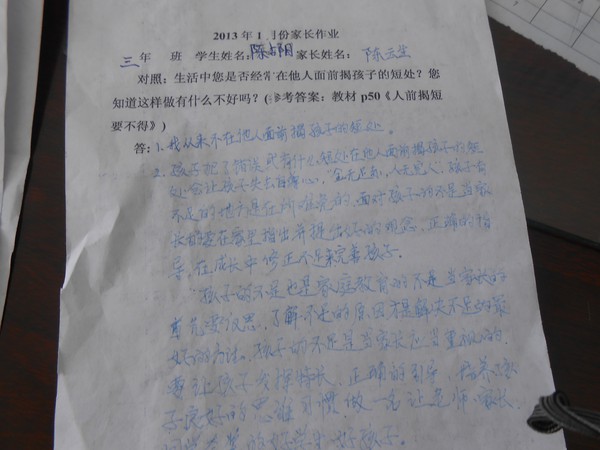 2013年1月份家长作业
三年 班 学生姓名:陈 阳 家长姓名: 陈云生
对照:生活中您是否经常在他人面前揭孩子的短处?您
知道这样做有什么不好吗?(参考答案:教材 p50《人前揭短
要不得》)
答:1、我从来不在他人面前揭孩子的短处。
2、孩子犯了错误或有什么短处在他人面前揭孩子的短
处会让孩子失去自尊心,"金无足赤,人无完人",孩子有
不足的地方是在所难免的,面对孩子的不是当家
长的要在家里指出并提出 的观念,正确的指
导,在成长中修正不足来完善孩子。
孩子的不是也是家庭教育的不是当家长的
首先要反思,了解不足的原因才是解决不足的最
好的办法,孩子的不足是当家长应当重视的,
要让孩子发挥特长,正确的引导,培养孩
子良好的思维习惯做一名让老师、家长、
的好学生好孩子。